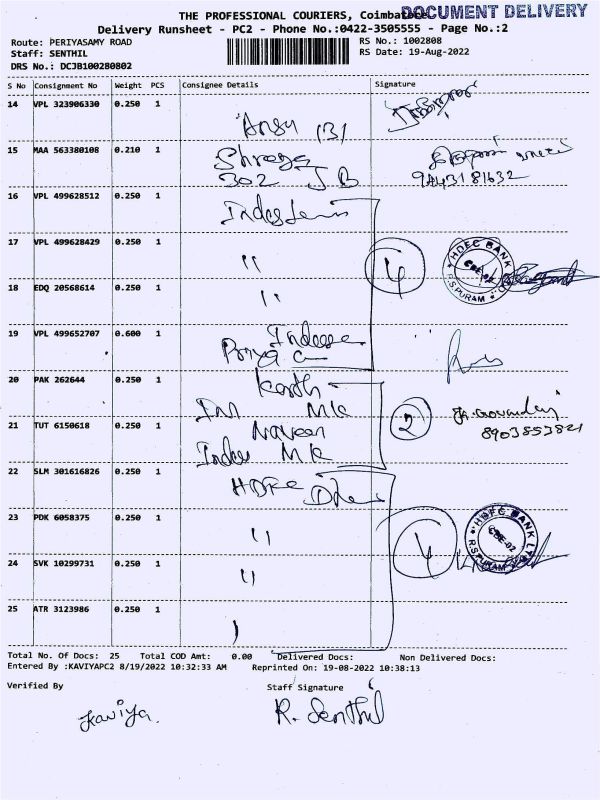 THE PROFESSIONAL COURIERS, Coimbatore
DOCUMENT DELIVERY
Delivery Runsheet - PC2 - Phone No.:0422-3505555 - Page No.:2
Route: PERIYASAMY ROAD
RS No.: 1002808
Staff: SENTHIL
RS Date: 19-Aug-2022
DRS No.: DCJB100280802
S No Consignment No Weight PCS Consignee Details Signature
14 VPL 323906330 0.250 1
131
15 MAA 563380108 0.210 1
Shreya
302 J B
9443181632
16 VPL 499628512 0.250 1
17 VPL 499628429 0.250 1
"
4
HDFC BANK
R.S PURAM
18 EDQ 20568614 0.250 1
"
19 VPL 499652707 0.600 1
Priya
20 PAK 262644 0.250 1
M K
2
21 TUT 6150618 0.250 1
Naveen
8903853821
M K
22 SLM 301616826 0.250 1
HDFC
23 PDK 6058375 0.250 1
"
4
HDFC BANK LTD
R.S PURAM
CBE-02
24 SVK 10299731 0.250 1
"
25 ATR 3123986 0.250 1
Total No. Of Docs: 25 Total COD Amt: 0.00 Delivered Docs: Non Delivered Docs:
Entered By :KAVIYAPC2 8/19/2022 10:32:33 AM Reprinted On: 19-08-2022 10:38:13
Verified By Staff Signature
Kaviya.
R. Senthil